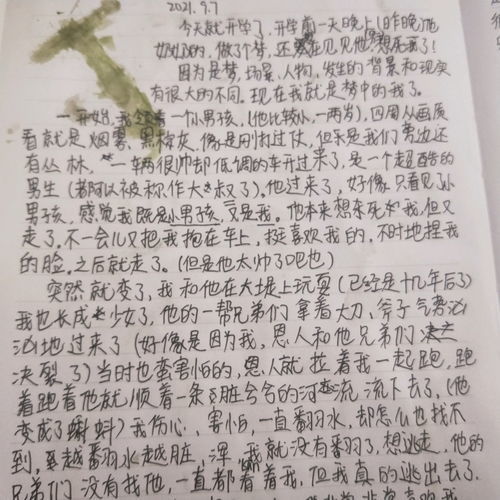 2021.9.7
今天就开学了,开学前一天晚上(昨晚)他
的,做了个梦,还在见见他,想死了!
因为是梦,场景、人物,发生的背景和现实
有很大的不同。现在我就是梦中的我了。
一开始,我领着一个小男孩,(他比较小,一两岁),四周从画质
看就是烟雾、黑棕灰,像是刚打过仗,但乐是我们旁边还
有丛林,一辆很帅却低调的车开过来了,是一个超酷的
男生(都可以被称作大叔了)。他过来了,好像只看见了小
男孩,感觉我既是小男孩,又是我。他本来想弄死我,但又
走了。不一会儿又把我抱在车上,挺喜欢我的,不时地捏我
的脸,之后就走了。(但是他太帅了吧也)
突然就变了,我和他在大堤上玩耍(已经是十几年后了)
我也长成少女了,他的一帮兄弟们拿着大刀、斧子气势汹
汹地过来了(好像是因为我,恩人和他兄弟们
决裂了)当时也蛮害怕的,恩人就拉着我一起跑,跑
着跑着他就顺着一条脏兮兮的河流流下去了,(他
变成了蝌蚪)我伤心,害怕,一直翻水,却怎么也找不
到,越翻水越脏,浑,我就没有翻了,想逃走,他的
兄弟们没有找他,一直都看着我,但我真的逃出去了.